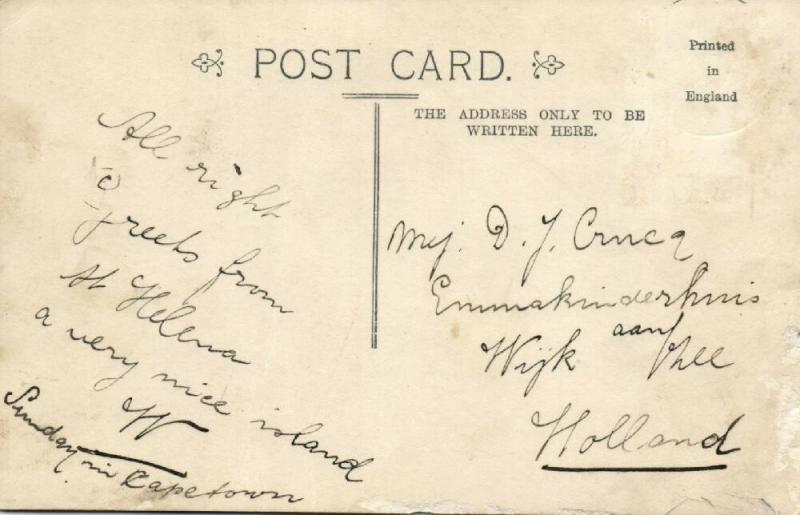 POST CARD.
Printed
in
England
THE ADDRESS ONLY TO BE
WRITTEN HERE.
All right
Greets from
St Helena
a very nice island
W
Sunday in Capetown
Mej. D. J. Crucq
Emmakinderhuis
Wijk aan Zee
Holland